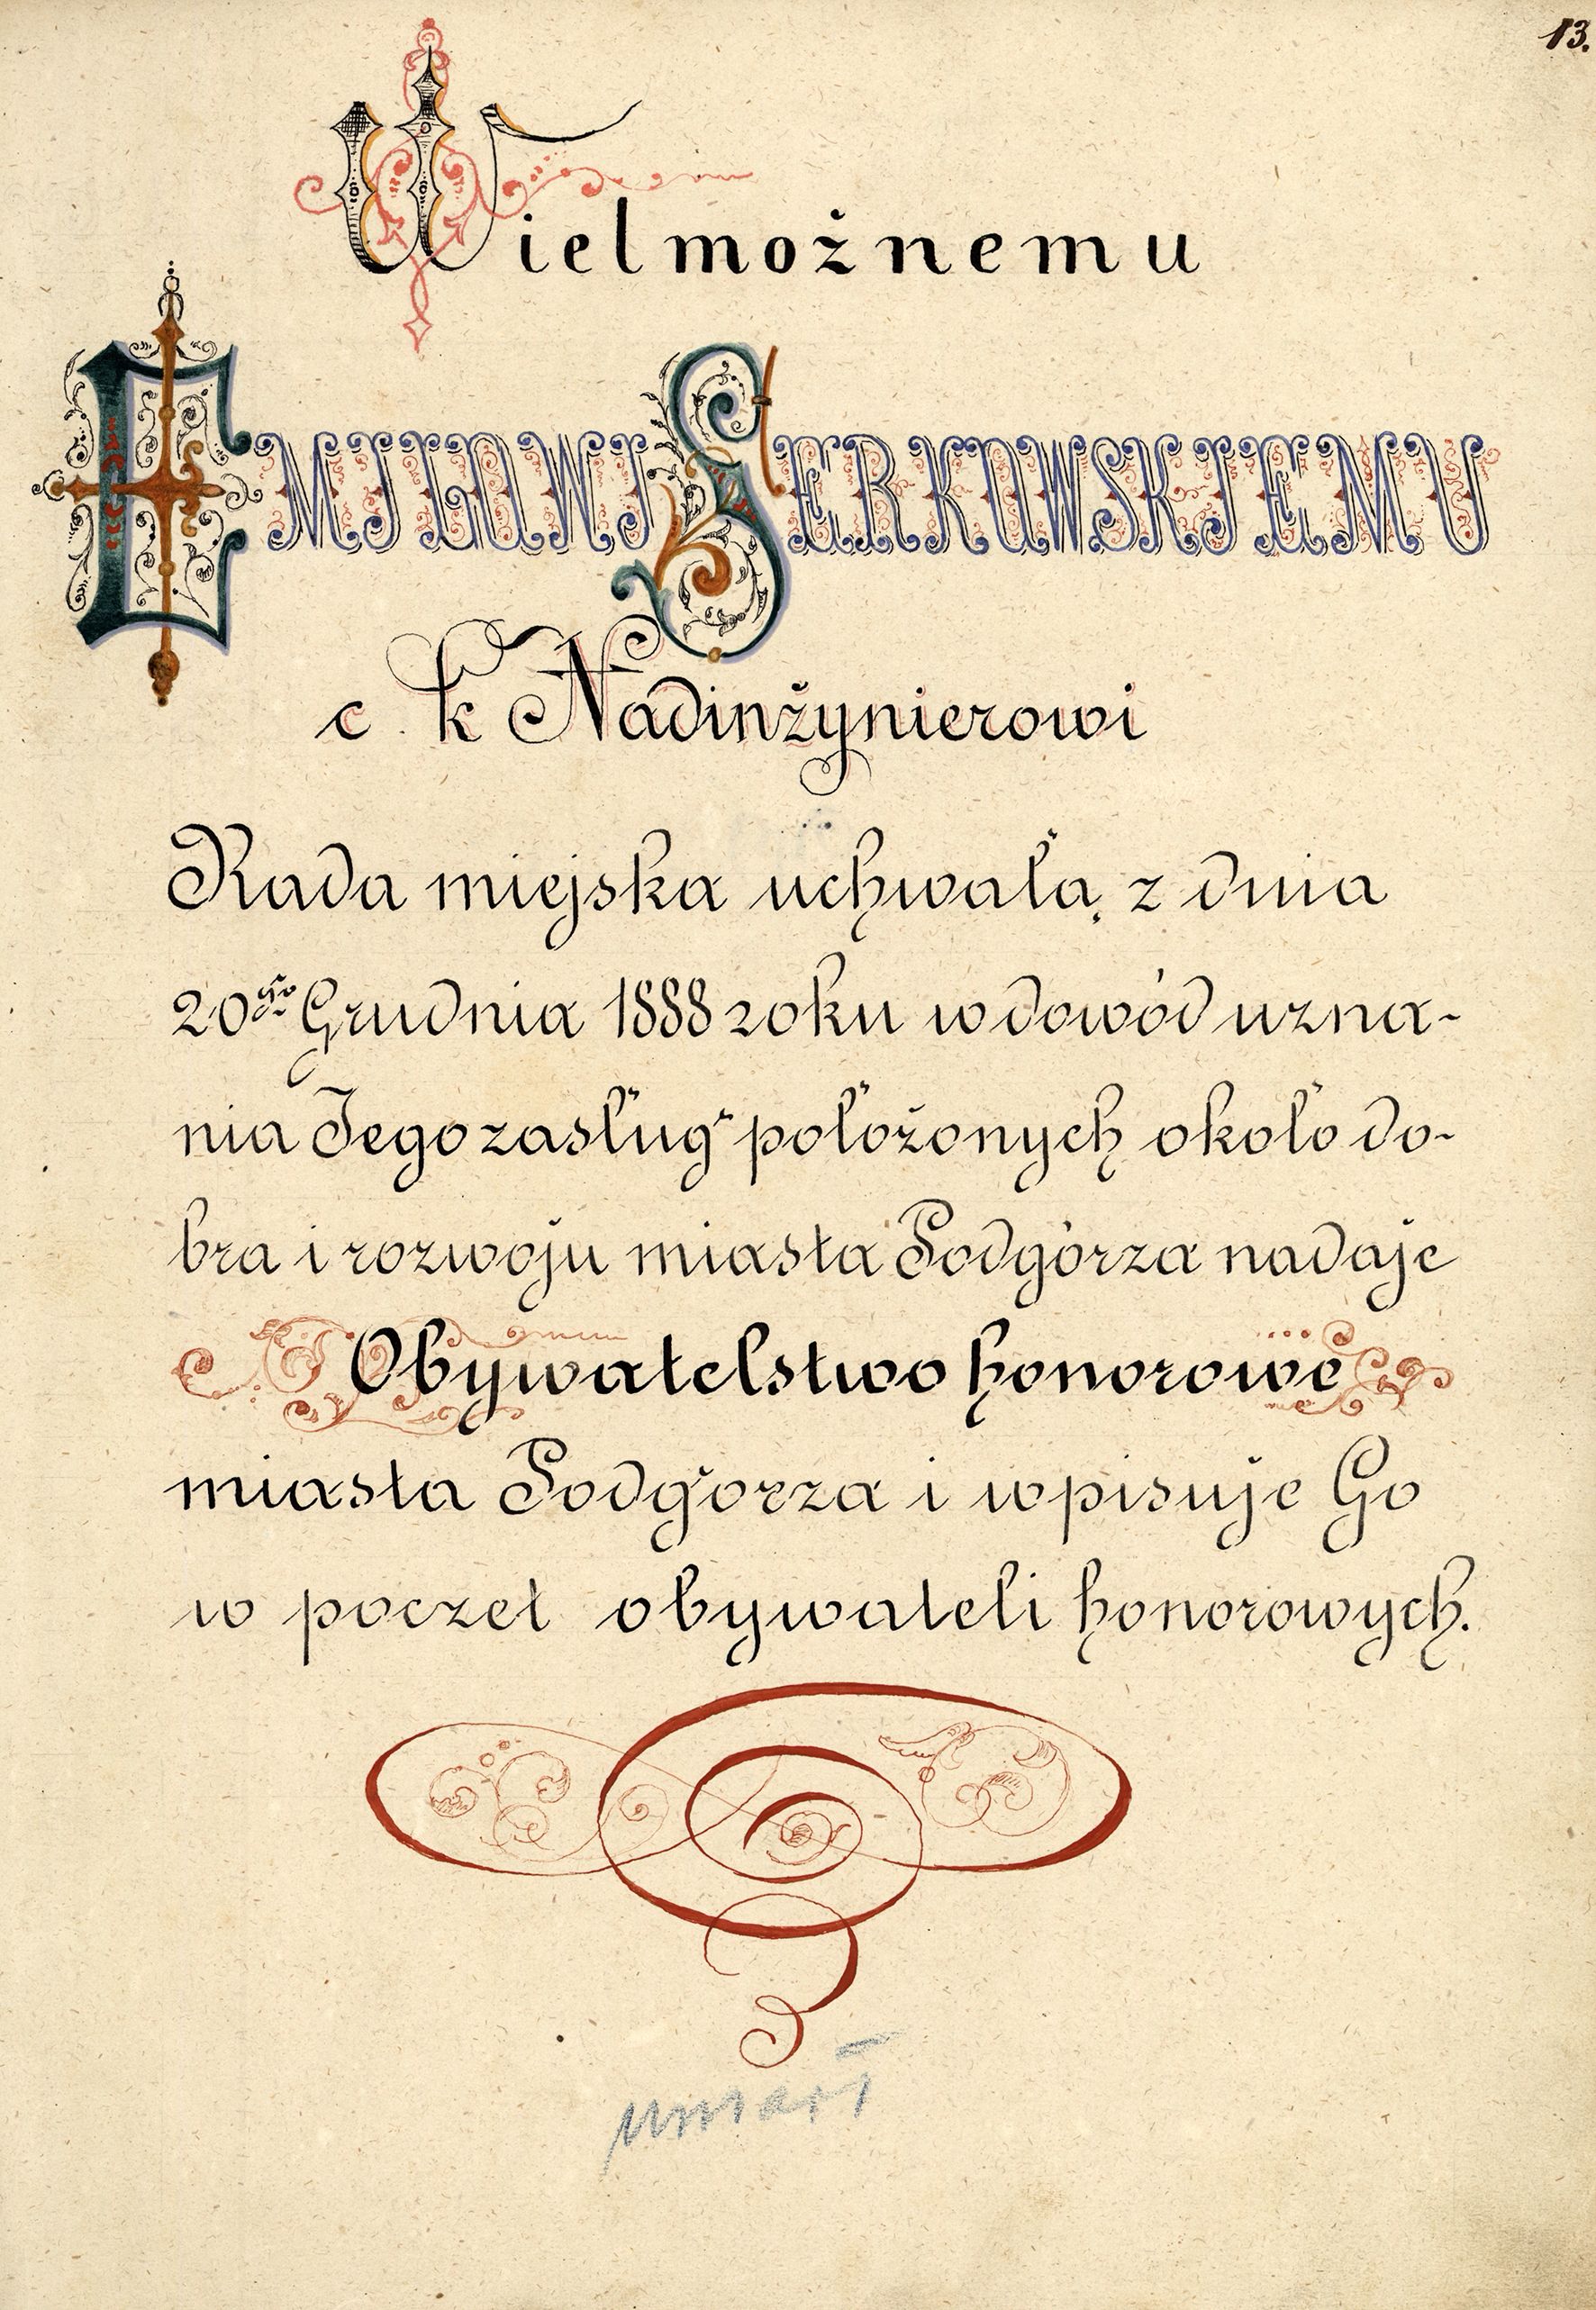 13.
Wielmożnemu
EMILOWI SERKOWSKIEMU
c. k Nadinżynierowi
Rada miejska uchwałą z dnia
20go Grudnia 1888 roku w dowód uzna-
nia Jego zasług położonych około do-
bra i rozwoju miasta Podgórza nadaje
Obywatelstwo honorowe
miasta Podgórza i wpisuje Go
w poczet obywateli honorowych.
umarł